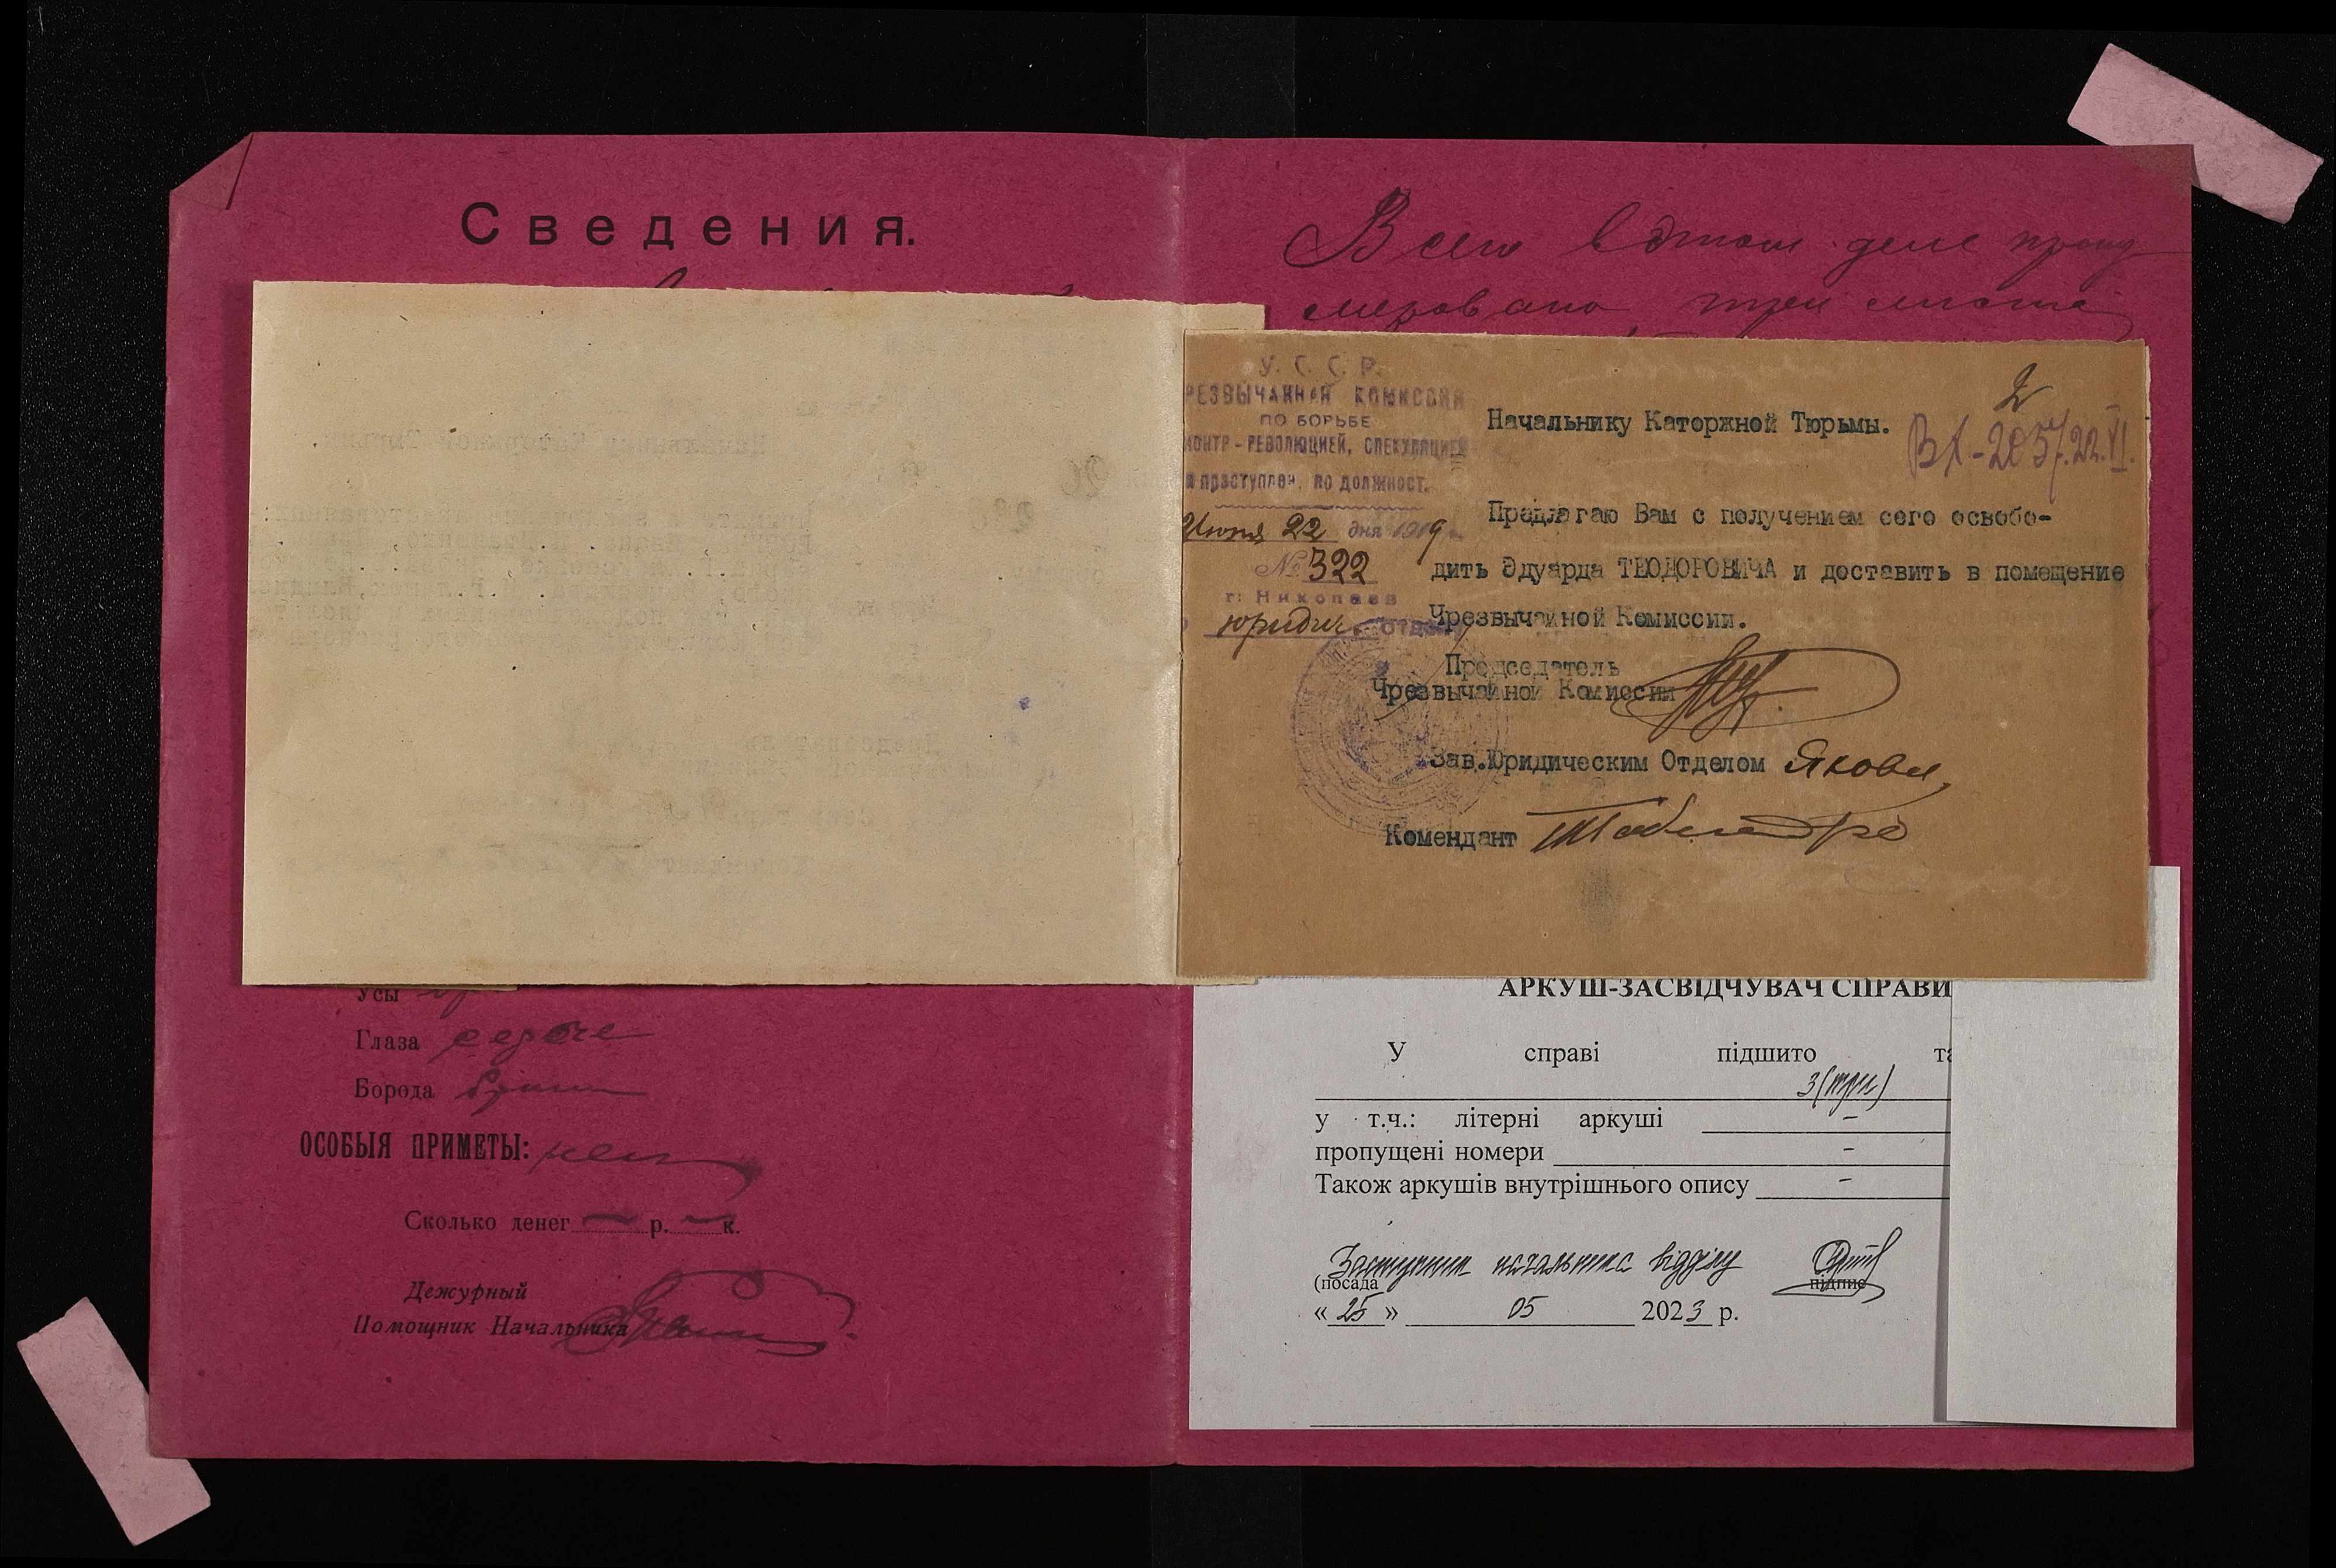 Сведения.
Усы
Глаза серые
Борода
ОСОБЫЯ ПРИМЕТЫ: нет
Сколько денег — р. — к.
Дежурный
Помощник Начальника
Всего в этом деле прону
меровано три листа
У. С. С. Р.
РЕЗВЫЧАЙНАЯ КОМИССИЯ
ПО БОРЬБЕ
КОНТР-РЕВОЛЮЦИЕЙ, СПЕКУЛЯЦИЕЙ
и преступлен. по должност.
Июня 22 дня 1919 г.
№ 322
г. Николаев
юридич. отдел
2
Вх-205/22.VI.
Начальнику Каторжной Тюрьмы.
Предлагаю Вам с получением сего освобо-
дить Эдуарда ТЕОДОРОВИЧА и доставить в помещение
Чрезвычайной Комиссии.
Председатель
Чрезвычайной Комиссии
Зав.Юридическим Отделом
Комендант
АРКУШ-ЗАСВІДЧУВАЧ СПРАВИ
У справі підшито та
3(три)
у т.ч.: літерні аркуші –
пропущені номери –
Також аркушів внутрішнього опису –
Заступник начальника відділу
(посада підпис
« 25 » 05 2023 р.